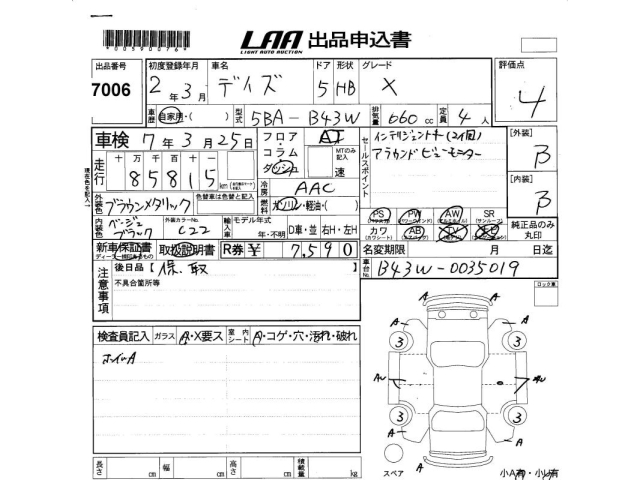 *00590076*
LAA 出品申込書
LIGHT AUTO AUCTION
出品番号 7006
初度登録年月 2年3月
車名 デイズ
ドア 形状 5 HB
グレード X
評価点 4
車歴 自家用・( )
型式 5BA-B43W
排気量 660cc
定員 4人
車検 7年3月25日
フロア・コラム ダッシュ
AT
MTのみ記入 速
セールスポイント
インテリジェントキー(2個)
アラウンドビューモニター
[外装] B
[内装] B
走行 十万 千百十 85815 km
冷房 AAC
外装色 ブラウンメタリック
色替車は色替と記入
燃料 ガソリン・軽油・( )
内装色 ベージュ ブラック
外装カラーNo. C22
輸入車 モデル年式 年・不明 D車・並 右H・左H
PS PW AW SR
カワ AB TV ナビ
純正品のみ丸印
新車保証書 取扱説明書 R券 ¥ 7,590
名変期限 月 日迄
車台No. B43W-0035019
注意事項
後日品 [保、取
不具合箇所等
ロック車
検査員記入
ガラス A・X要ス
室内シート A・コゲ・穴・汚れ・破れ
ホイルA
A A A A A A
3 3 3 3
AW
スペア
長さ cm 幅 cm 高さ cm 積載量 kg